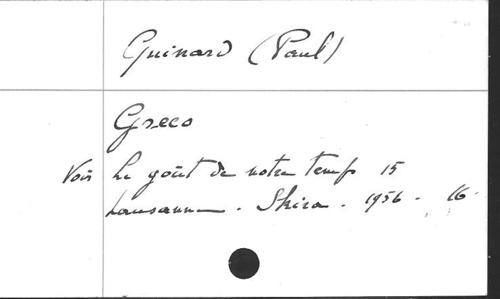 Guinard (Paul)
Greco
Voir Le goût de notre temps 15
Lausanne. Skira. 1956. 16.